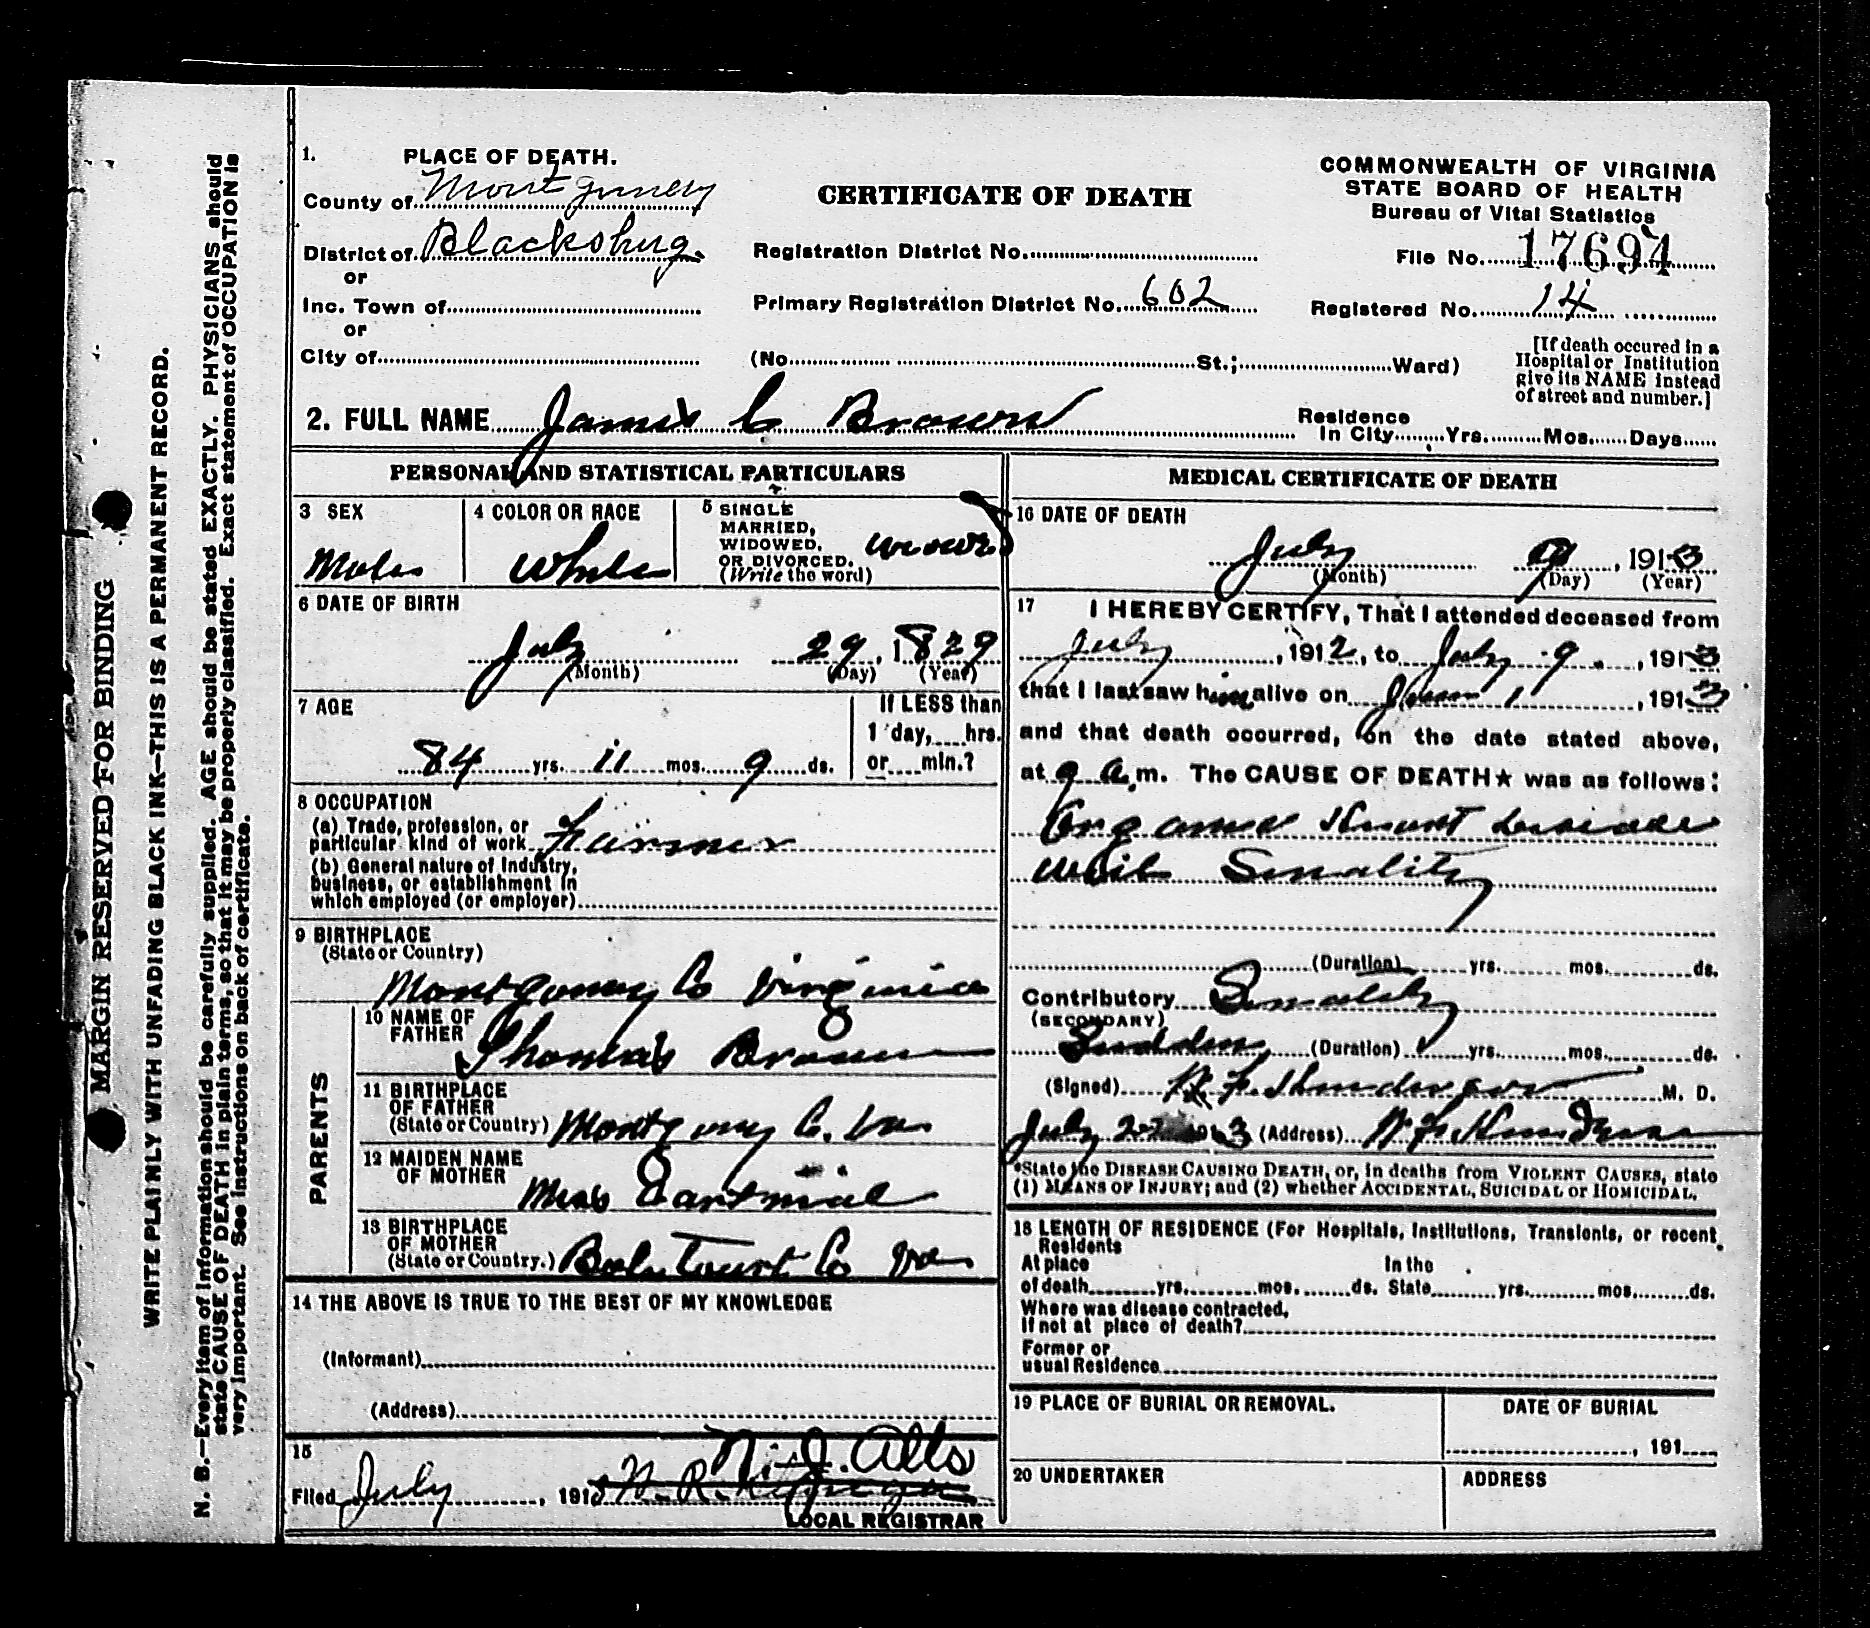 MARGIN RESERVED FOR BINDING
WRITE PLAINLY WITH UNFADING BLACK INK—THIS IS A PERMANENT RECORD.
N. B.—Every item of information should be carefully supplied. AGE should be stated EXACTLY. PHYSICIANS should
state CAUSE OF DEATH in plain terms, so that it may be properly classified. Exact statement of OCCUPATION is
very important. See instructions on back of certificate.
1. PLACE OF DEATH.
County of Montgomery
District of Blacksburg.
or
Inc. Town of
or
City of
CERTIFICATE OF DEATH
Registration District No.
Primary Registration District No. 602
(No. St.; Ward)
COMMONWEALTH OF VIRGINIA
STATE BOARD OF HEALTH
Bureau of Vital Statistics
File No. 17694
Registered No. 14
[If death occured in a
Hospital or Institution
give its NAME instead
of street and number.]
2. FULL NAME James C Brown
Residence
In City Yrs. Mos. Days
PERSONAL AND STATISTICAL PARTICULARS
3 SEX
Male
4 COLOR OR RACE
White
5 SINGLE
MARRIED,
WIDOWED,
OR DIVORCED.
(Write the word)
6 DATE OF BIRTH
July 29, 1829
(Month) (Day) (Year)
7 AGE
84 yrs. 11 mos. 9 ds.
If LESS than
1 day, hrs.
or min.?
8 OCCUPATION
(a) Trade, profession, or
particular kind of work Farmer
(b) General nature of Industry,
business, or establishment in
which employed (or employer)
9 BIRTHPLACE
(State or Country)
Montgomery Co Virginia
PARENTS
10 NAME OF
FATHER Thomas Brown
11 BIRTHPLACE
OF FATHER
(State or Country) Montgomery C. Va
12 MAIDEN NAME
OF MOTHER
Miss
13 BIRTHPLACE
OF MOTHER
(State or Country.) Botetourt Co Va
14 THE ABOVE IS TRUE TO THE BEST OF MY KNOWLEDGE
(Informant)
(Address)
15
N. J. Alls
Filed July, 1913
LOCAL REGISTRAR
MEDICAL CERTIFICATE OF DEATH
16 DATE OF DEATH
July 9, 1913
(Month) (Day) (Year)
17 I HEREBY CERTIFY, That I attended deceased from
July, 1912, to July 9., 1913
that I last saw him alive on June 1, 1913
and that death occurred, on the date stated above,
at 9 a.m. The CAUSE OF DEATH★ was as follows:
Organic Heart disease
with Senility
(Duration) yrs. mos. ds.
Contributory Senility
(SECONDARY)
Sudden (Duration) yrs. mos. ds.
(Signed) M. D.
July 1913 (Address)
*State the DISEASE CAUSING DEATH, or, in deaths from VIOLENT CAUSES, state
(1) MEANS OF INJURY; and (2) whether ACCIDENTAL, SUICIDAL or HOMICIDAL.
18 LENGTH OF RESIDENCE (For Hospitals, Institutions, Transients, or recent
Residents
At place In the
of death yrs. mos. ds. State yrs. mos. ds.
Where was disease contracted,
If not at place of death?
Former or
usual Residence
19 PLACE OF BURIAL OR REMOVAL.
DATE OF BURIAL
, 191
20 UNDERTAKER
ADDRESS